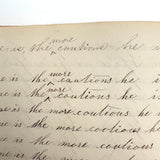 e is, the more cautious he is
ne is the more cautious he i
e is the more cautious he i
ne is the more cautious he i
e is the more cautious he
ne is the more cautious
is the more cautious
the more